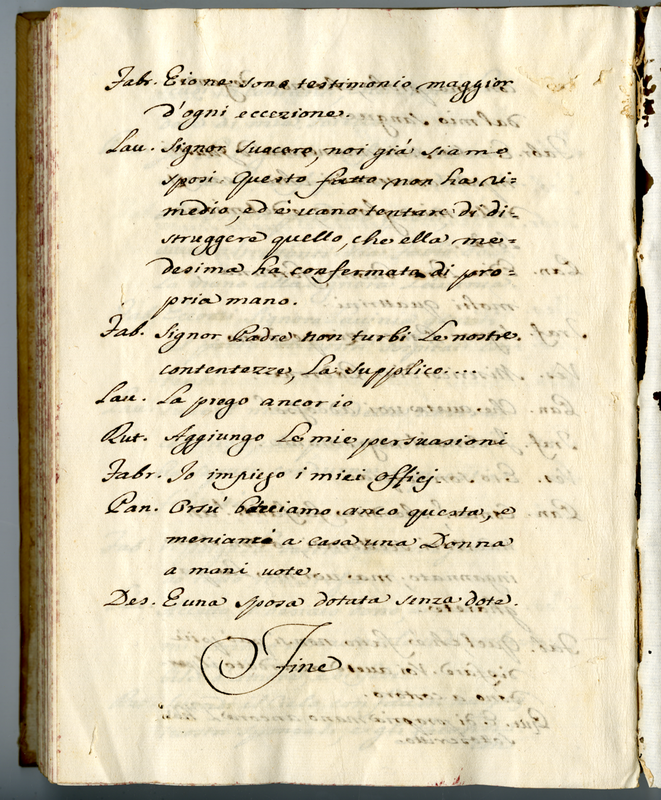 Fabr. E io ne sono testimonio maggior
d'ogni eccezione.
Lau. Signor Suocero, noi già siamo
sposi. Questo fatto non ha ri=
medio, ed è vano tentare di di=
struggere quello, che ella me=
desima ha confermata di pro=
pria mano.
Fab. Signor Padre non turbi le nostre
contentezze, La supplico....
Lau. La prego ancor io
Rut. Aggiungo Le mie persuasioni
Fabr. Io impiego i miei Officj
Pan. Orsù anco questa, e
meniam a casa una Donna
a mani vote
Des. E una sposa dotata senza dote.
Fine